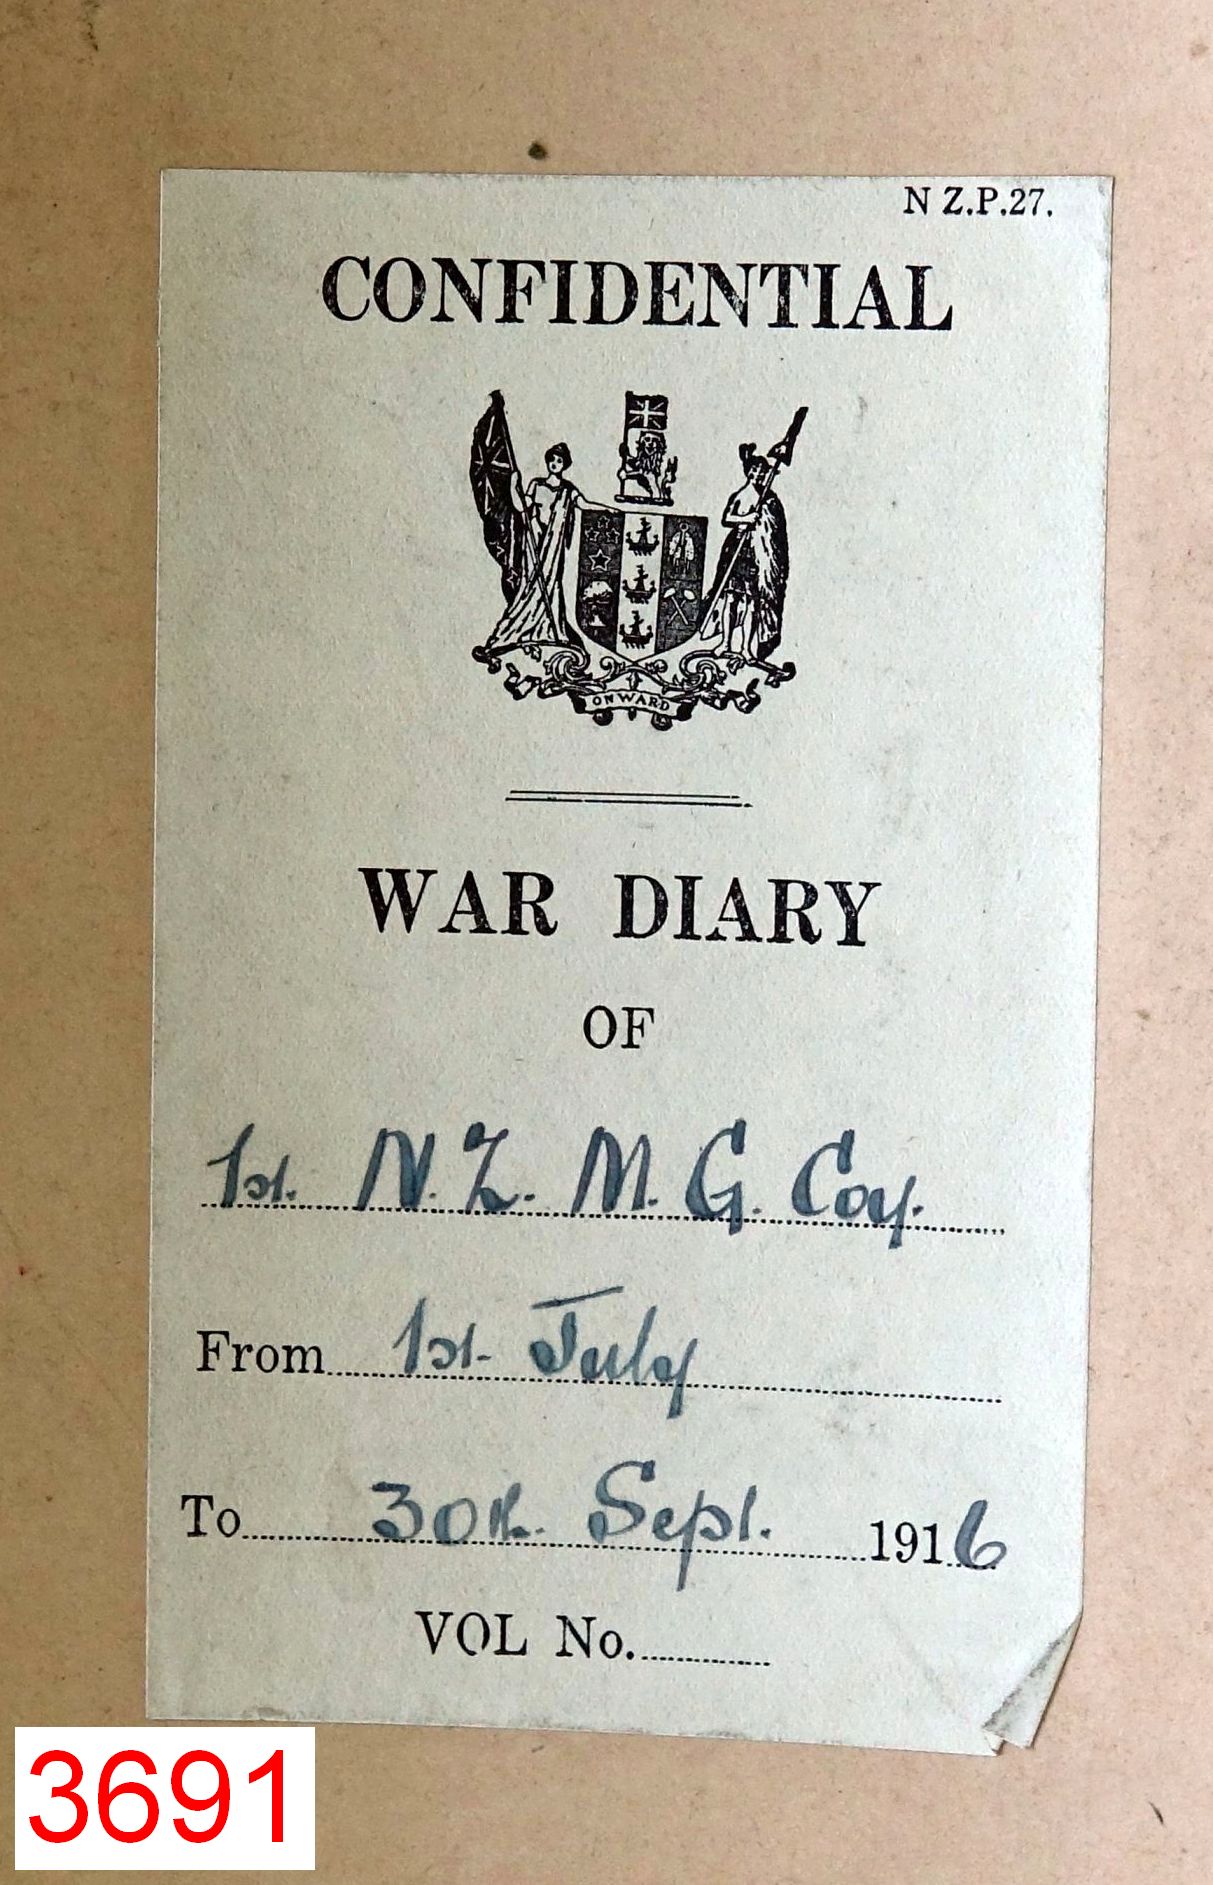 N Z.P.27.
CONFIDENTIAL
ONWARD
WAR DIARY
OF
1st. N.Z. M.G. Coy.
From 1st. July
To 30th. Sept. 1916
VOL No.
3691